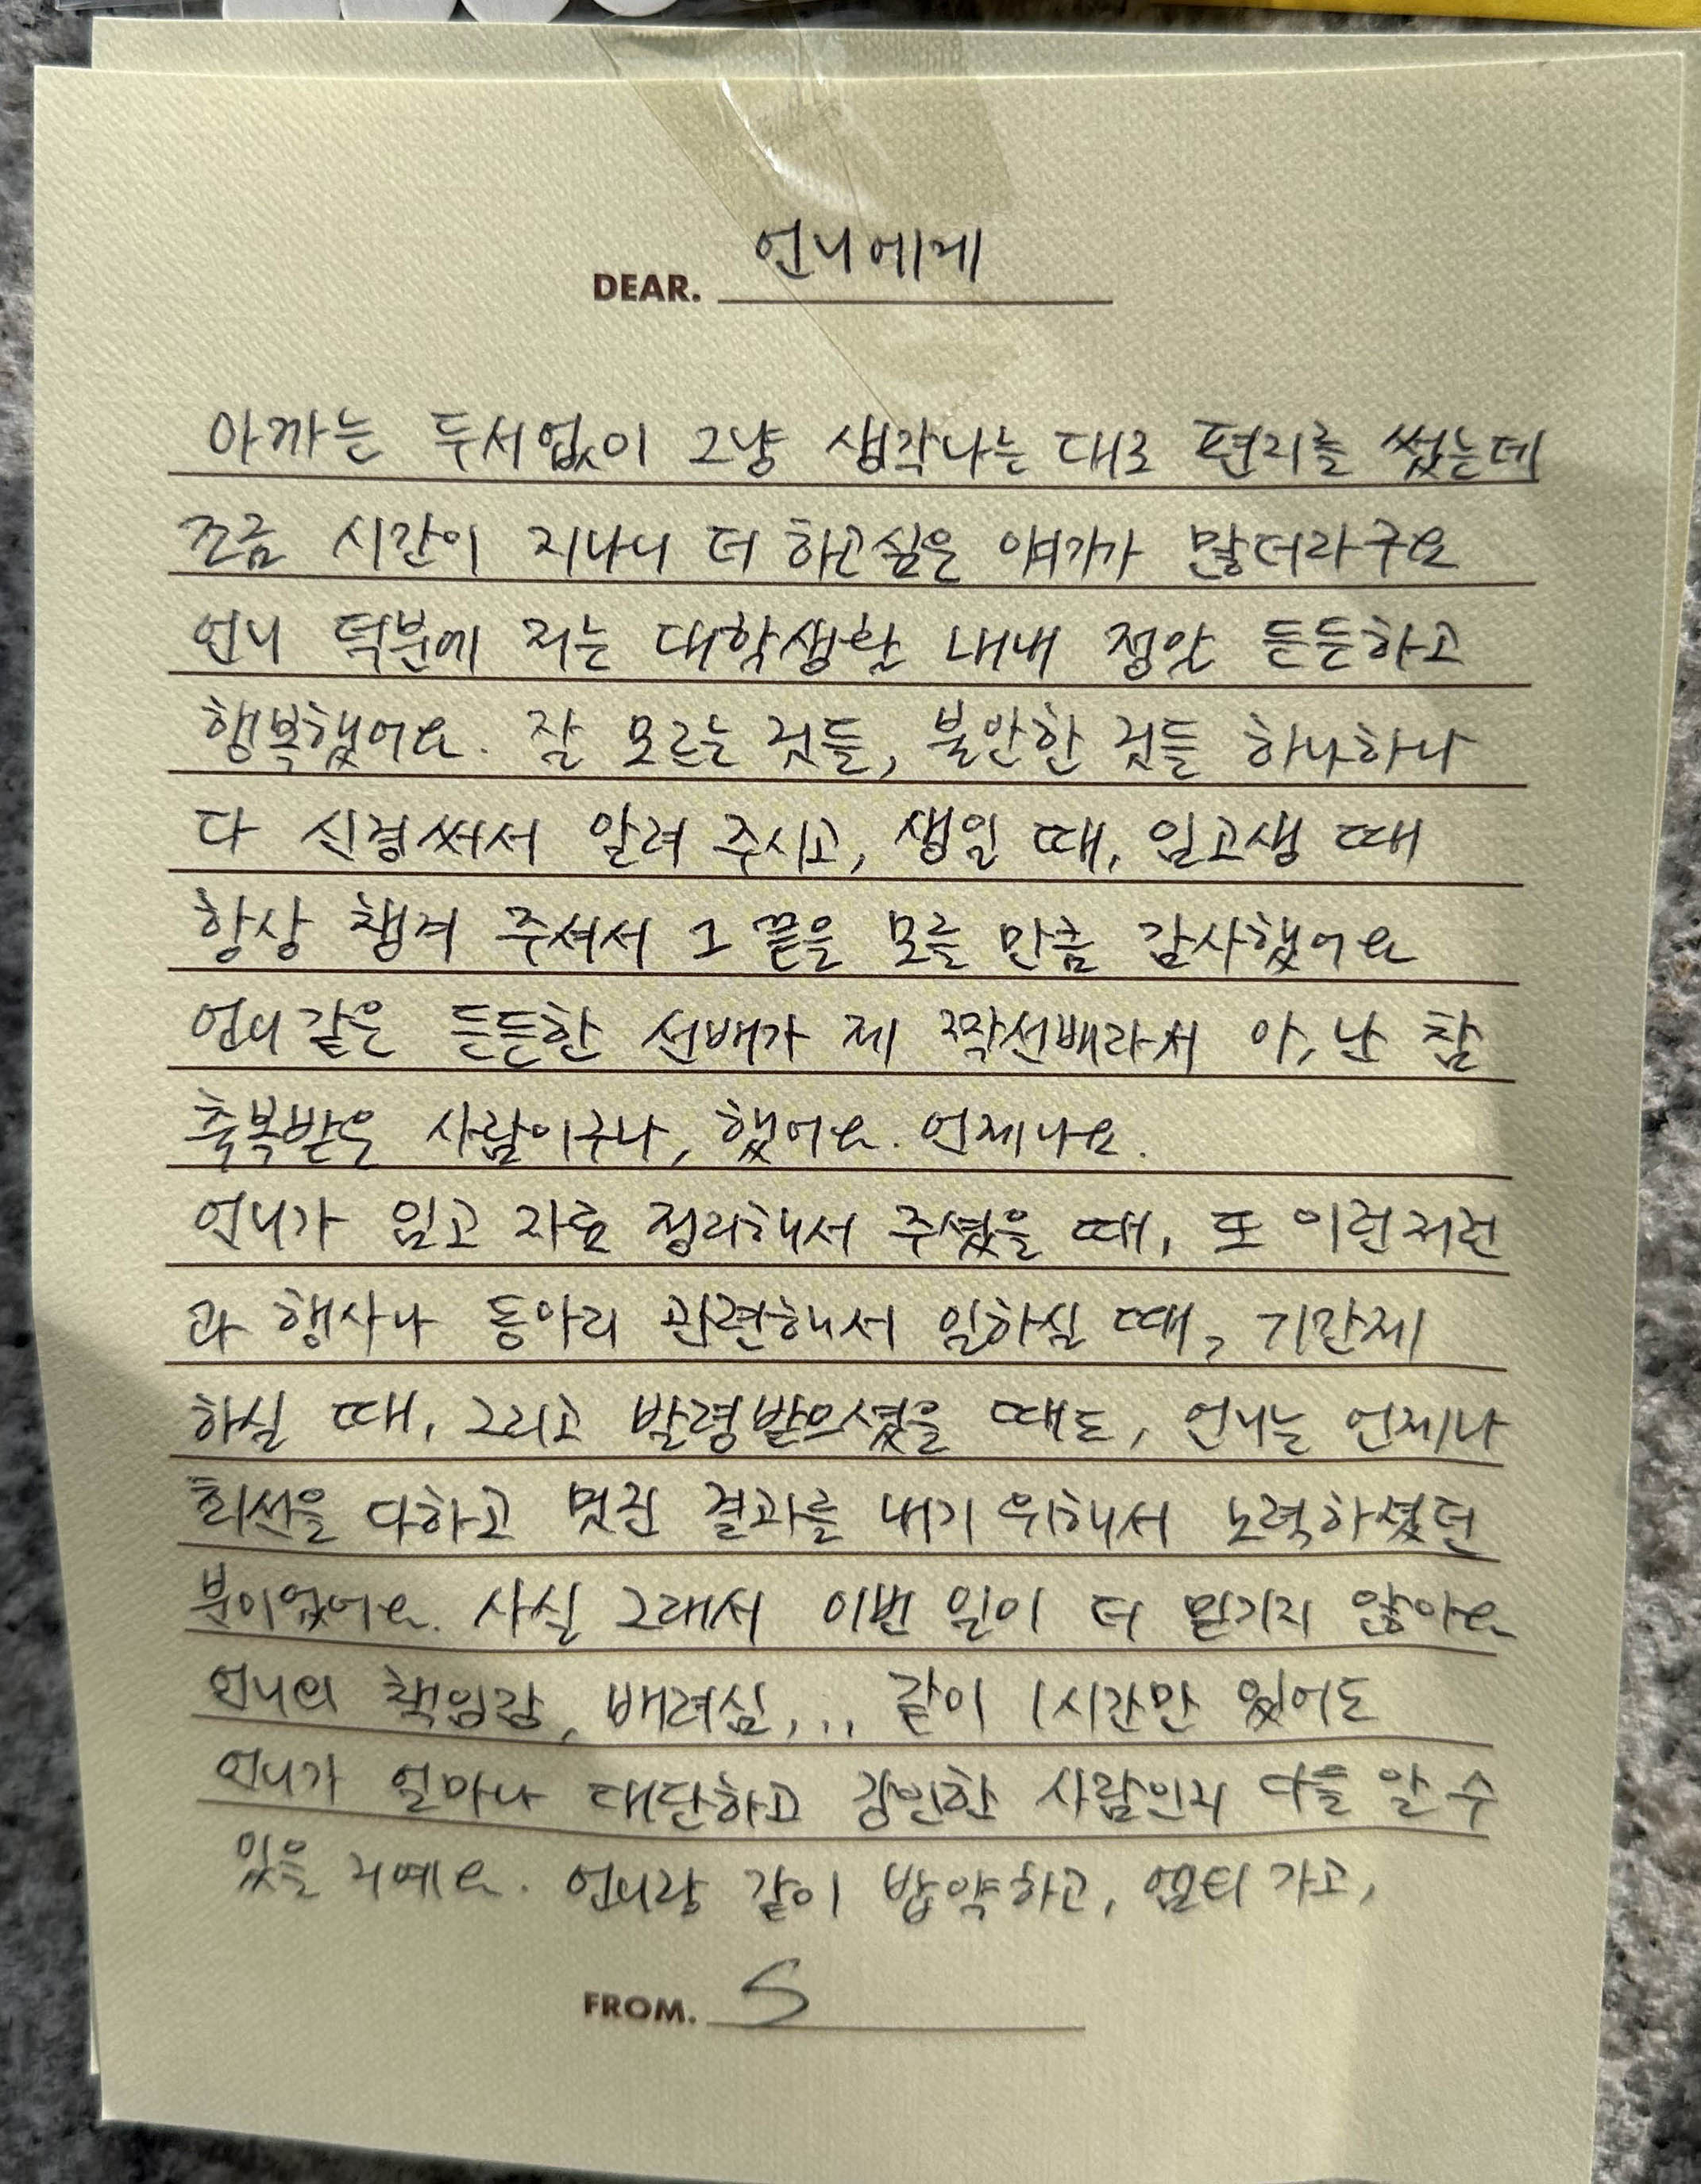 DEAR. 언니에게
아까는 두서없이 그냥 생각나는 대로 편지를 썼는데
조금 시간이 지나니 더 하고싶은 얘기가 많더라구요
언니 덕분에 저는 대학생활 내내 정말 든든하고
행복했어요. 잘 모르는 것들, 불안한 것들 하나하나
다 신경써서 알려 주시고, 생일 때, 임고생 때
항상 챙겨 주셔서 그 끝을 모를 만큼 감사했어요
언니같은 든든한 선배가 제 짝선배라서 아, 난 참
축복받은 사람이구나, 했어요. 언제나요.
언니가 임고 자료 정리해서 주셨을 때, 또 이런저런
과 행사나 동아리 관련해서 일하실 때, 기간제
하실 때, 그리고 발령받으셨을 때도, 언니는 언제나
최선을 다하고 멋진 결과를 내기 위해서 노력하셨던
분이었어요. 사실 그래서 이번 일이 더 믿기지 않아요
언니의 책임감, 배려심,... 같이 1시간만 있어도
언니가 얼마나 대단하고 강인한 사람인지 다들 알 수
있을 거예요. 언니랑 같이 밥약하고, 엠티 가고,
FROM. S